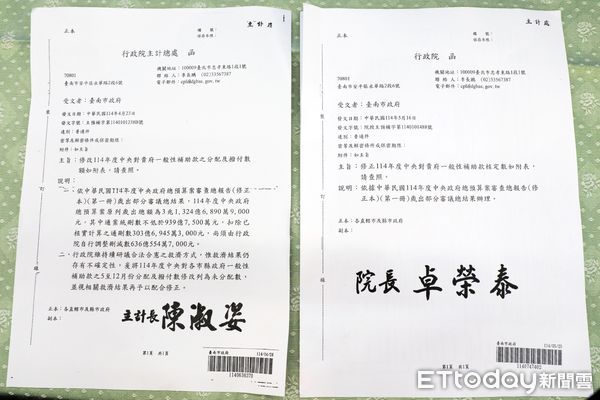 主計處
正本
檔　號：
保存年限：
行政院主計總處　函
機關地址：100009臺北市忠孝東路1段1號
聯絡人：李長鵬　(02)33567387
電子郵件：cpli@dgbas.gov.tw
70801
臺南市安平區永華路2段6號
受文者：臺南市政府
發文日期：中華民國114年4月23日
速別：普通件
密等及解密條件或保密期限：
附件：如主旨
主旨：修改114年度中央對貴府一般性補助款之分配及撥付數
額如附表，請查照。
說明：
一、依中華民國114年度中央政府總預算案審查總報告(修正
本)(第一冊)歲出部分審議總結果，114年度中央政府
總預算案原列歲出總額為3兆1,324億6,890萬9,000
元，其中通案統刪數不低於939億7,500萬元，扣除已
核實計算之通刪數303億6,945萬3,000元，尚須由行政
院自行調整刪減數636億554萬7,000元。
二、行政院雖持續研議合法合憲之救濟方式，惟救濟結果仍
存有不確定性，爰將114年度中央對各市縣政府一般性
補助款之5至12月份分配及撥付數修改列為未分配數，
並視相關救濟結果再予以配合修正。
正本：各直轄市及縣市政府
副本：
主計長 陳淑姿
第1頁　共1頁
臺南市政府
1140630370
主計處
正本
檔　號：
保存年限：
行政院　函
機關地址：100009臺北市忠孝東路1段1號
聯絡人：李長鵬　(02)33567387
電子郵件：cpli@dgbas.gov.tw
70801
臺南市安平區永華路2段6號
受文者：臺南市政府
發文日期：中華民國114年5月16日
速別：普通件
密等及解密條件或保密期限：
附件：如主旨
主旨：修正114年度中央對貴府一般性補助款核定數如附表，
請查照。
說明：依據中華民國114年度中央政府總預算案審查總報告(修
正本)(第一冊)歲出部分審議總結果辦理。
正本：各直轄市及縣市政府
副本：
院長 卓榮泰
第1頁　共1頁
臺南市政府
1140747402
ETtoday新聞雲